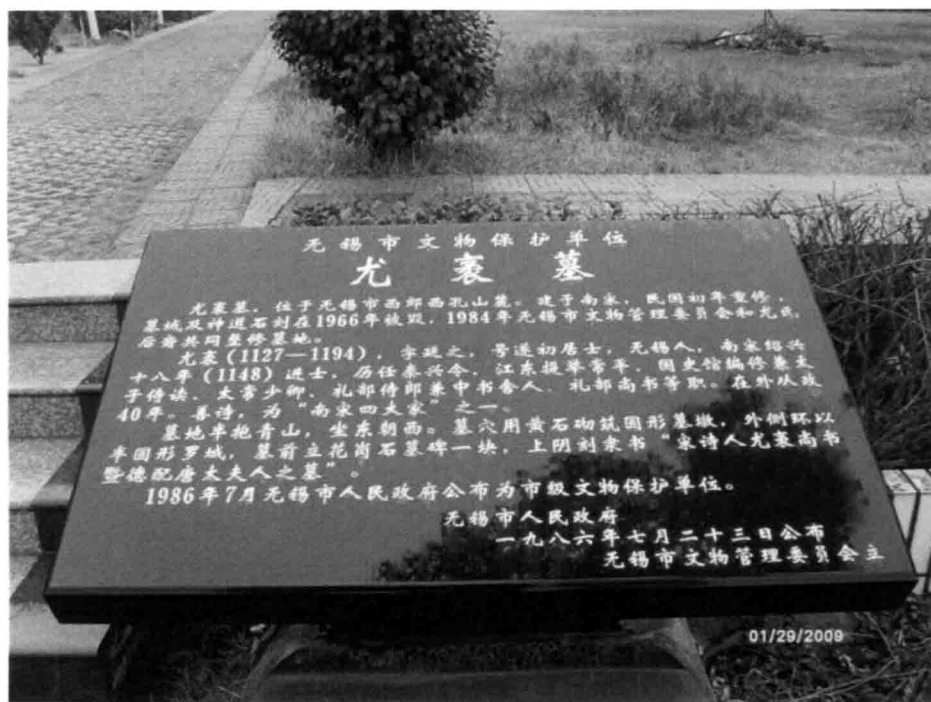 无锡市文物保护单位
尤袤墓
尤袤墓，位于无锡市西郊西孔山麓。建于南宋，民国初年重修，
墓域及神道石刻在1966年被毁，1984年无锡市文物管理委员会和尤氏
后裔共同整修墓地。
尤袤（1127—1194），字延之，号遂初居士，无锡人，南宋绍兴
十八年（1148）进士，历任泰兴令，江东提举常平，国史馆编修兼太
子侍读、太常少卿、礼部侍郎兼中书舍人、礼部尚书等职。在外从政
40年。善诗，为“南宋四大家”之一。
墓地半抱青山，坐东朝西。墓穴用黄石砌筑圆形墓墩，外侧环以
半圆形罗城，墓前立花岗石墓碑一块，上阴刻隶书“宋诗人尤袤尚书
暨德配唐太夫人之墓”。
1986年7月无锡市人民政府公布为市级文物保护单位。
无锡市人民政府
一九八六年七月二十三日公布
无锡市文物管理委员会立
01/29/2009